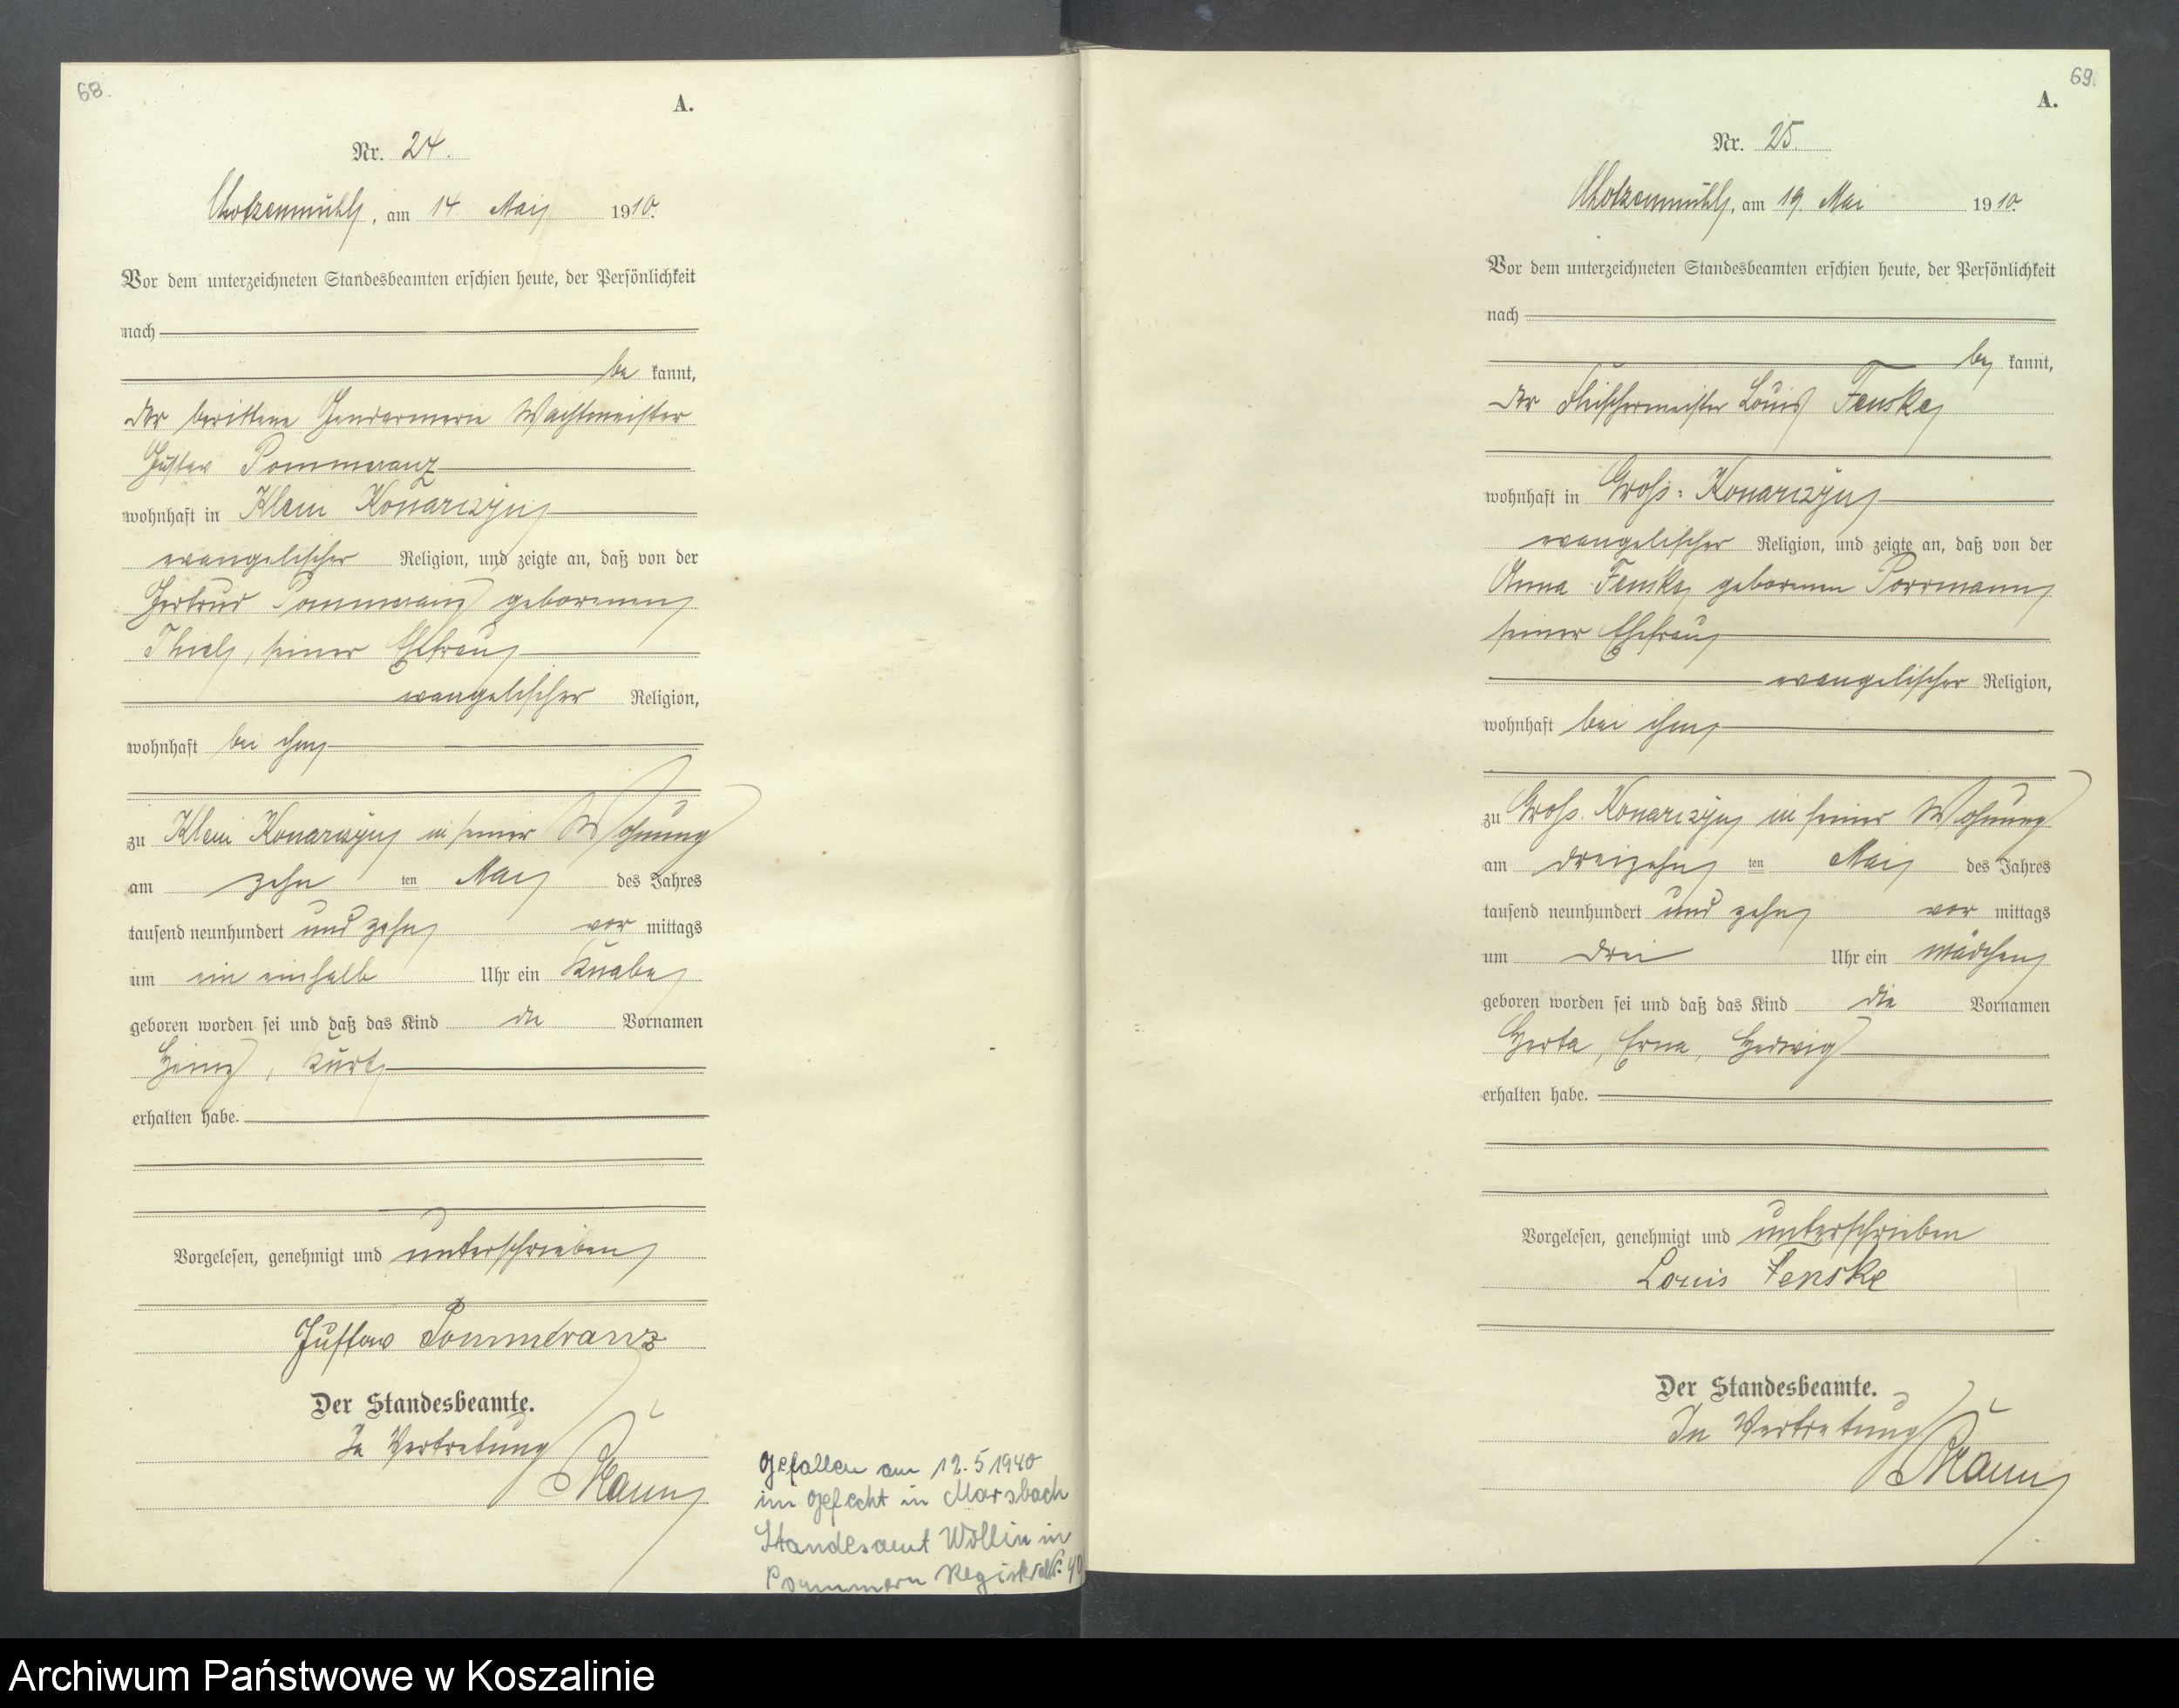 68.
A.
Nr. 24.
Chotzenmühl, am 14 Mai 1910.
Vor dem unterzeichneten Standesbeamten erschien heute, der Persönlichkeit
nach
be kannt,
der berittene Gendarmerie Wachtmeister
Gustav Pommeranz
wohnhaft in Klein Konarczyn
evangelischer Religion, und zeigte an, daß von der
Gertrud Pommeranz geborenen
Thiel, seiner Ehefrau
evangelischer Religion,
wohnhaft bei ihm
zu Klein Konarczyn in seiner Wohnung
am zehn ten Mai des Jahres
tausend neunhundert und zehn vor mittags
um ein einhalb Uhr ein Knabe
geboren worden sei und daß das Kind die Vornamen
Heinz, Kurt
erhalten habe.
Vorgelesen, genehmigt und unterschrieben
Gustav Pommeranz
Der Standesbeamte.
In Vertretung
Mann
Gefallen am 12.5 1940
im Gefecht in Marsbach
Standesamt Wollin in
Pommern Register Nr. 40
69.
A.
Nr. 25.
Chotzenmühl, am 19. Mai 1910.
Vor dem unterzeichneten Standesbeamten erschien heute, der Persönlichkeit
nach
be kannt,
der Fleischermeister Louis Fenske
wohnhaft in Groß-Konarczyn
evangelischer Religion, und zeigte an, daß von der
Anna Fenske geborenen Porrmann
seiner Ehefrau
evangelischer Religion,
wohnhaft bei ihm
zu Groß Konarczyn in seiner Wohnung
am dreizehn ten Mai des Jahres
tausend neunhundert und zehn vor mittags
um drei Uhr ein Mädchen
geboren worden sei und daß das Kind die Vornamen
Herta, Erna, Hedwig
erhalten habe.
Vorgelesen, genehmigt und unterschrieben
Louis Fenske
Der Standesbeamte.
In Vertretung
Mann
Archiwum Państwowe w Koszalinie